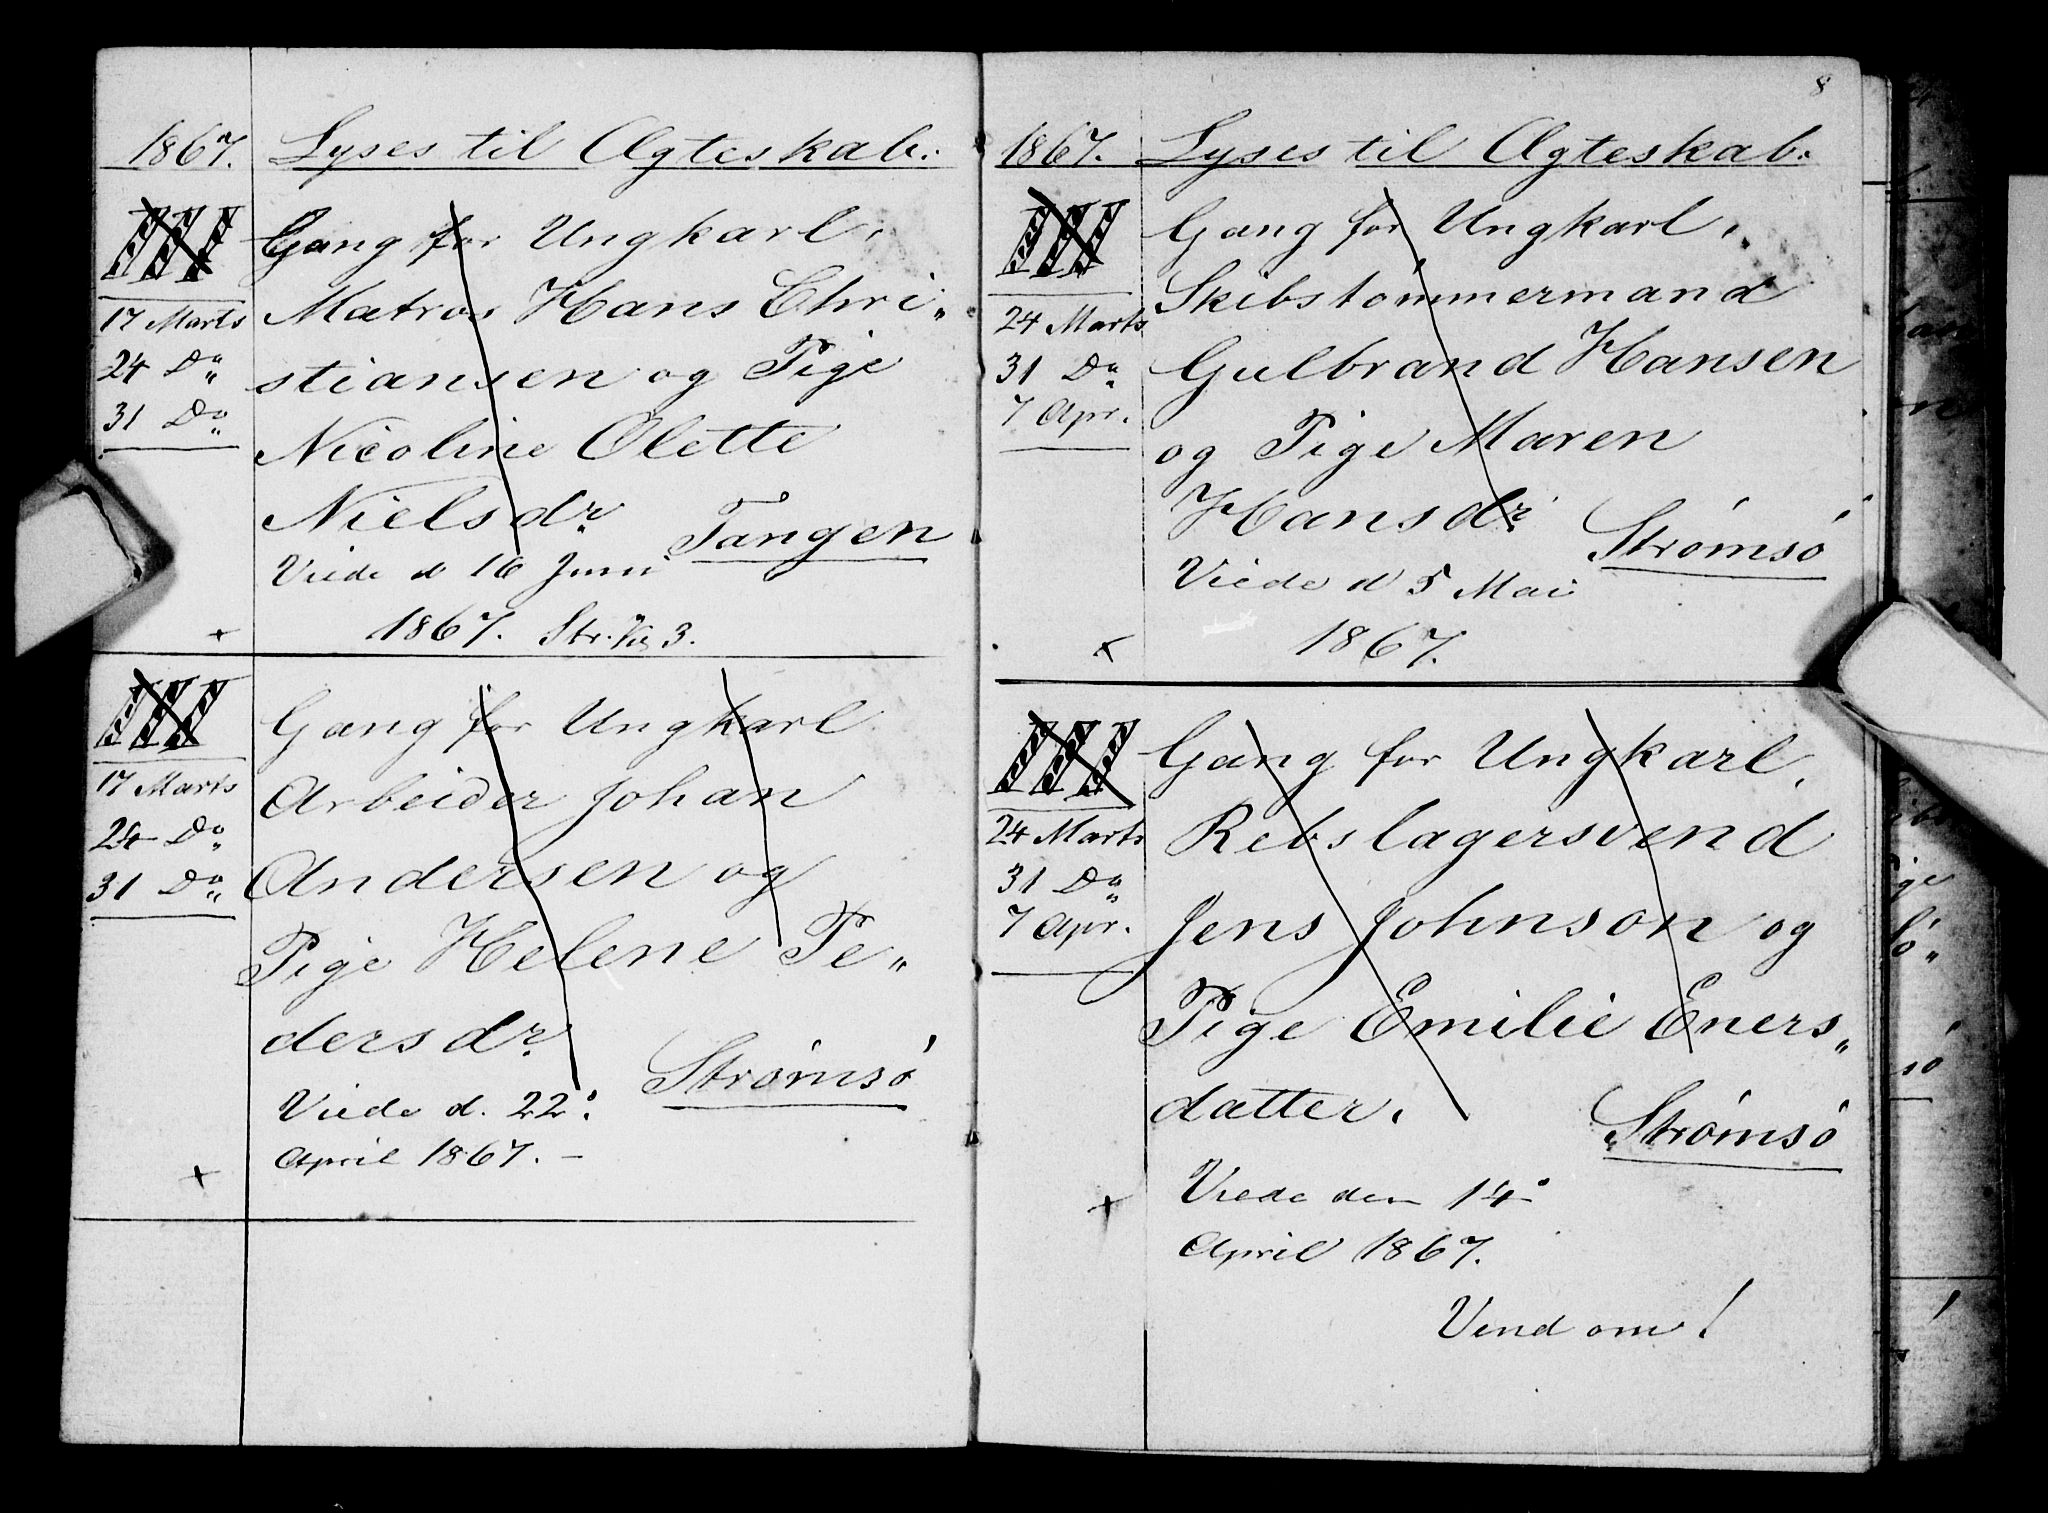 1867. Lyses til Ægteskab.
III Gang for Ungkarl,
Matros Hans Chri„
17 Marts
24 Do stiansen og Pige
31 Do
Nicoline Olette
Nielsdr. Tangen
Viede d 16 Juni
1867. Str. 3.
+
III Gang for Ungkarl
17 Marts Arbeider Johan
24 Do
31 Do Andersen og
Pige Helene Pe„
dersdr. Strømsö
Viede d. 22.
April 1867. –
+
8
1867. Lyses til Ægteskab.
III Gang for Ungkarl,
Skibstømmermand
24 Marts
31 Do Gulbrand Hansen
7 Apr.
og Pige Maren
Hansdr. Strømsö
Viede d 5 Mai
1867.
+
III Gang for Ungkarl,
24 Marts Rebslagersvend
31 Do
7 Apr. Jens Johnson og
Pige Emilie Eners„
datter. Strømsö
Viede den 14
April 1867.
+
Vend om!